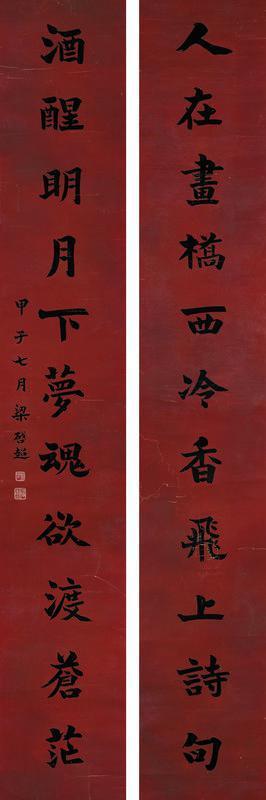 人在畫橋西冷香飛上詩句
酒醒明月下夢魂欲渡蒼茫
甲子七月梁啓超